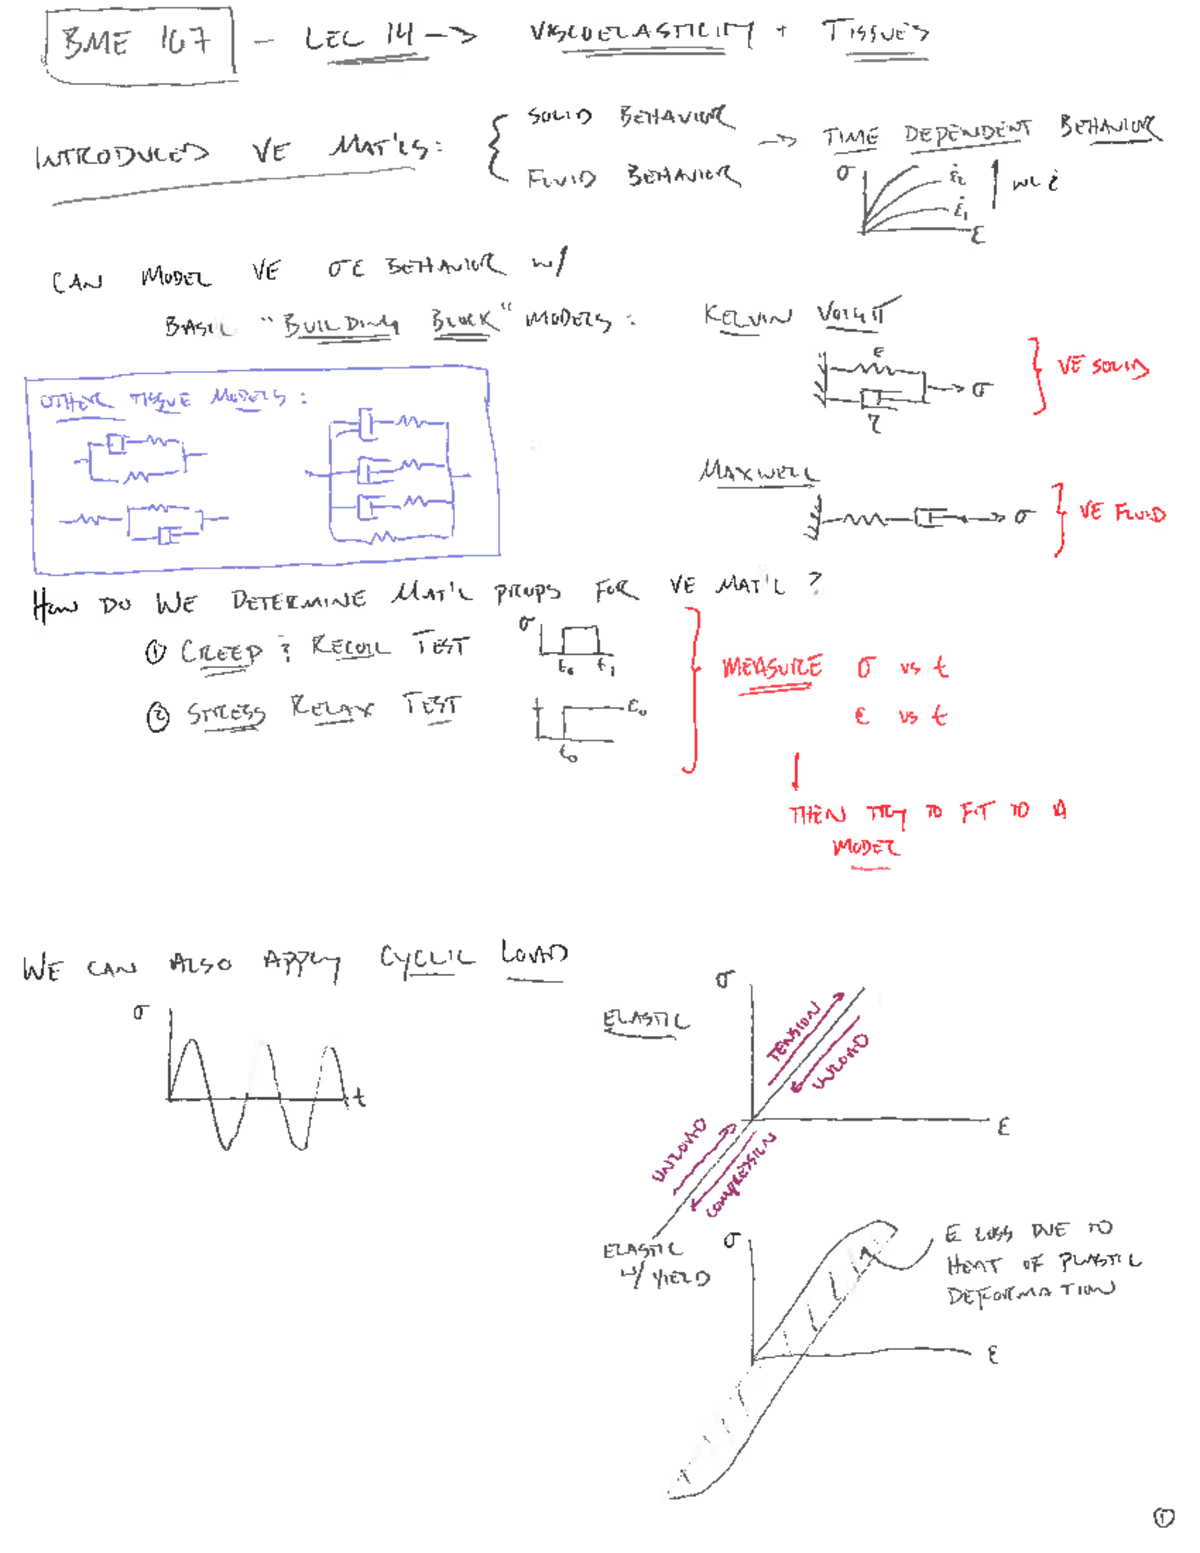 BME 107 - LEC 14 -> VISCOELASTICITY + TISSUES
INTRODUCED VE MAT'LS: { SOLID BEHAVIOR
FLUID BEHAVIOR
-> TIME DEPENDENT BEHAVIOR
σ ε̇2 ↑ w/ ε̇
ε̇1
ε
CAN MODEL VE σε BEHAVIOR w/
BASIC "BUILDING BLOCK" MODELS:
KELVIN VOIGT
E
σ
η
} VE SOLID
OTHER TISSUE MODELS:
MAXWELL
σ } VE FLUID
HOW DO WE DETERMINE MAT'L PROPS FOR VE MAT'L?
① CREEP & RECOIL TEST
σ
t0 t1
② STRESS RELAX TEST
ε0
t0
MEASURE σ vs t
ε vs t
THEN TRY TO FIT TO A
MODEL
WE CAN ALSO APPLY CYCLIC LOAD
σ
t
ELASTIC
σ
TENSION
UNLOAD
ε
UNLOAD
COMPRESSION
ELASTIC
w/ YIELD
σ
E LOSS DUE TO
HEAT OF PLASTIC
DEFORMATION
ε
①